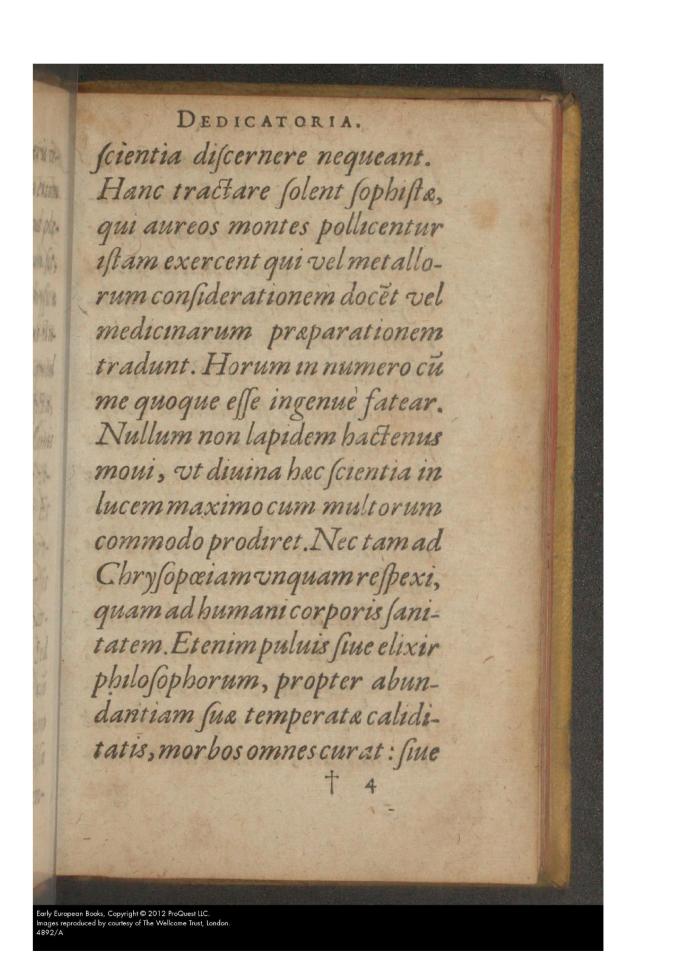 DEDICATORIA.
ſcientia diſcernere nequeant.
Hanc tractare ſolent ſophiſtæ,
qui aureos montes pollicentur
iſtam exercent qui vel metallo-
rum conſiderationem docēt vel
medicinarum præparationem
tradunt. Horum in numero cū
me quoque eſſe ingenuè fatear.
Nullum non lapidem hactenus
moui, vt diuina hæc ſcientia in
lucem maximo cum multorum
commodo prodiret. Nec tam ad
Chryſopœiam vnquam reſpexi,
quam ad humani corporis ſani-
tatem. Etenim puluis ſiue elixir
philoſophorum, propter abun-
dantiam ſuæ temperatæ calidi-
tatis, morbos omnes curat : ſiue
† 4
Early European Books, Copyright © 2012 ProQuest LLC.
Images reproduced by courtesy of The Wellcome Trust, London.
4892/A